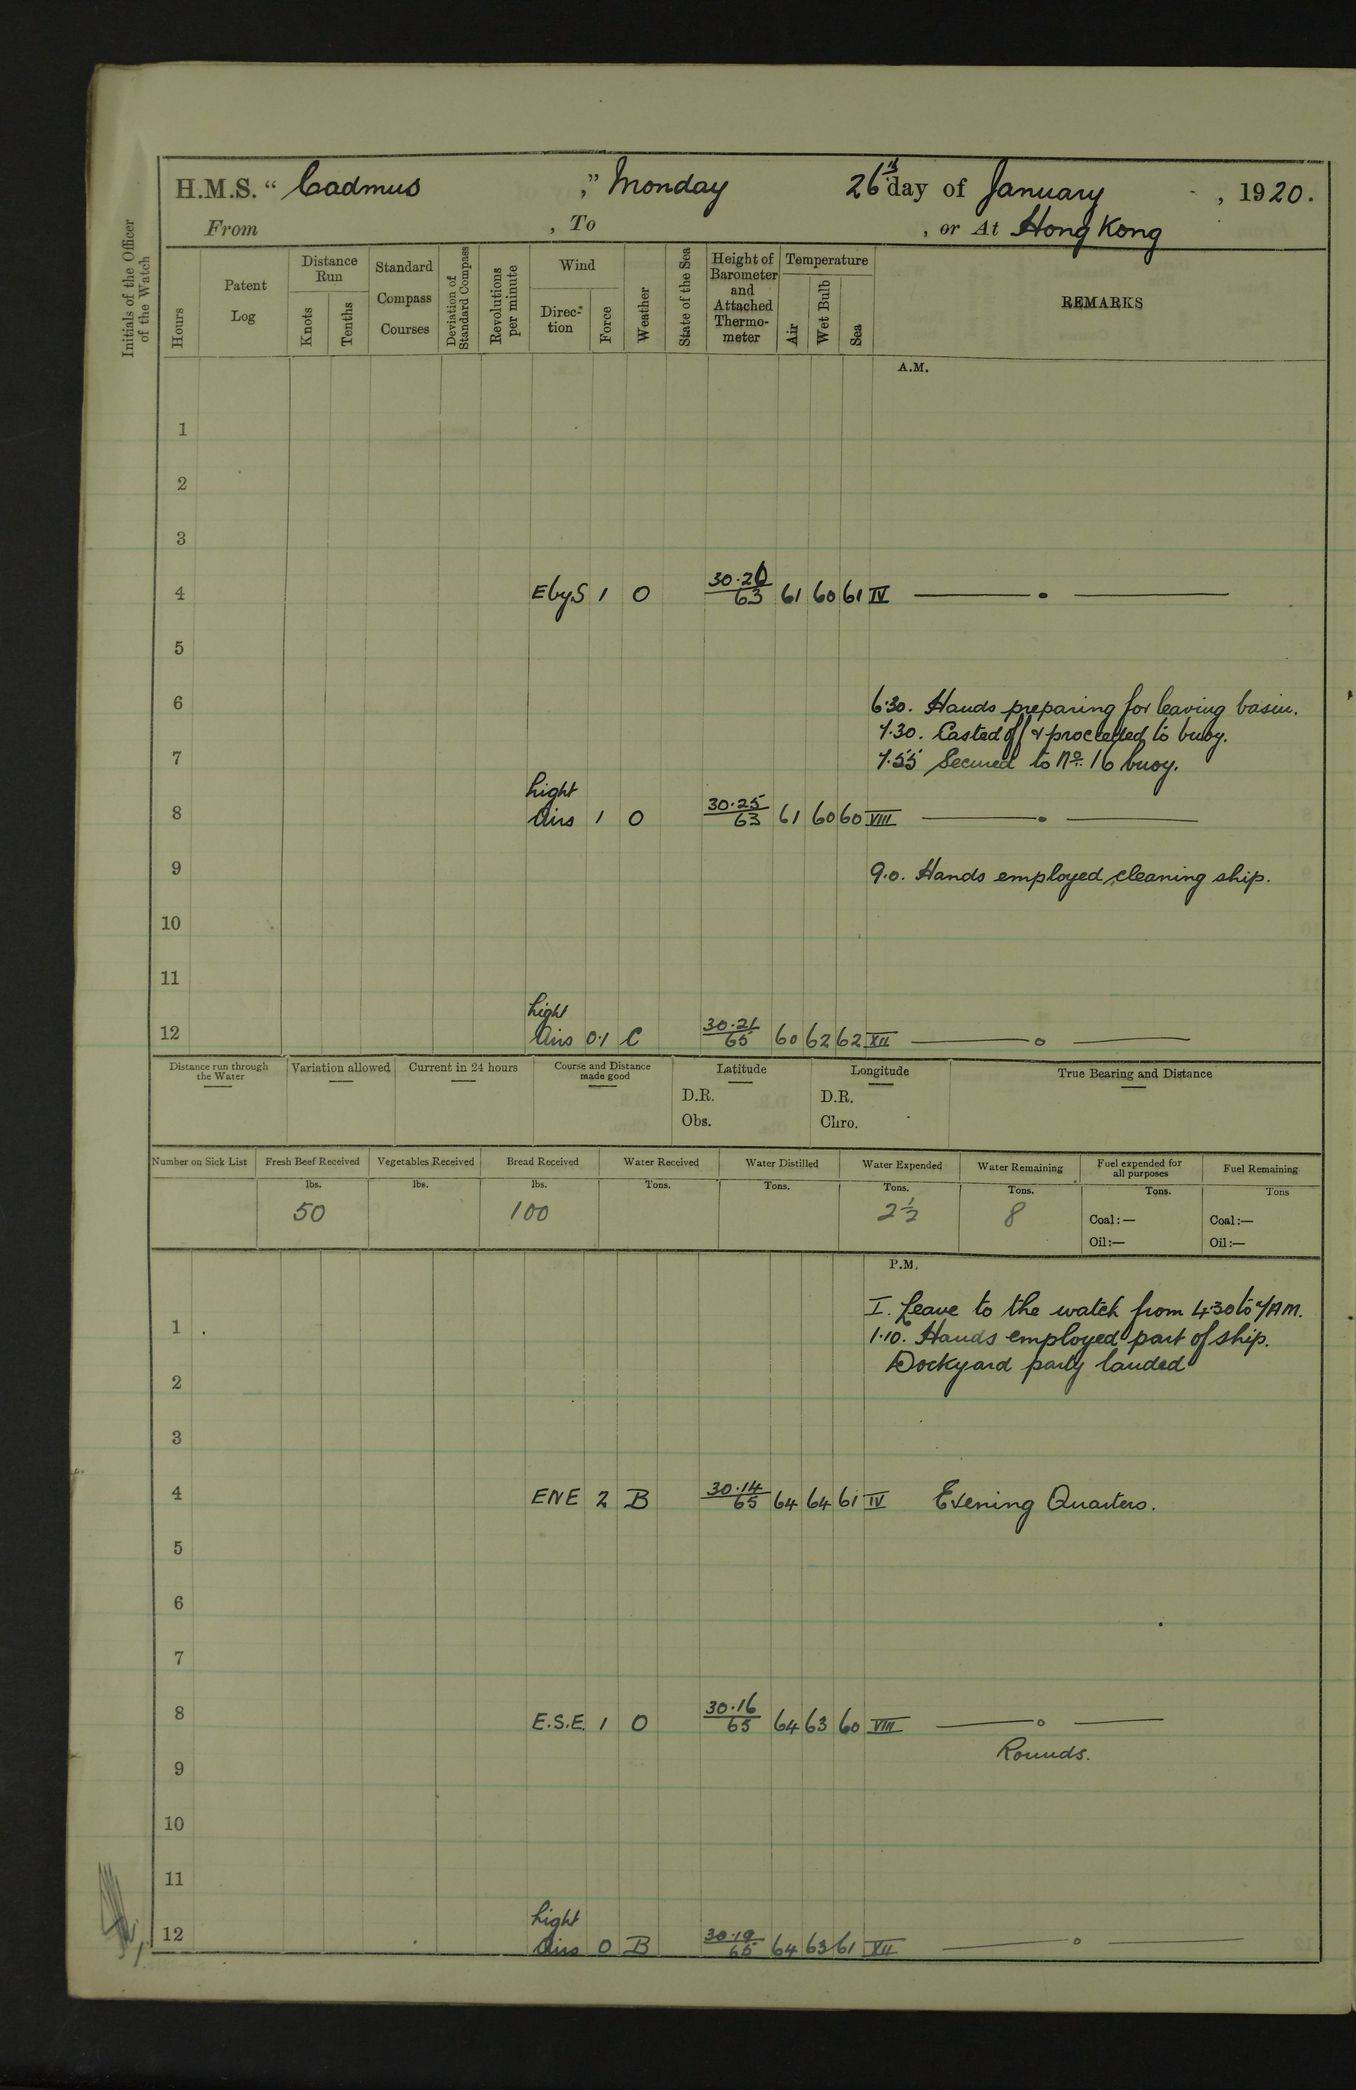 H.M.S. “ Cadmus ,” Monday 26th day of January , 1920.
From , To , or At Hong Kong
Initials of the Officer of the Watch
Hours
Patent Log
Distance Run
Knots
Tenths
Standard Compass Courses
Deviation of Standard Compass
Revolutions per minute
Wind
Direction
Force
Weather
State of the Sea
Height of Barometer and Attached Thermometer
Temperature
Air
Wet Bulb
Sea
REMARKS
A.M.
1
2
3
4 EbyS 1 O 30.26/63 61 60 61 IV
5
6 6.30. Hands preparing for leaving basin.
7.30. Casted off & proceeded to buoy.
7 7.55 Secured to No. 16 buoy.
8 Light Airs 1 O 30.25/63 61 60 60 VIII
9 9.0. Hands employed cleaning ship.
10
11
12 Light Airs 0.1 C 30.21/65 60 62 62 XII
Distance run through the Water
Variation allowed
Current in 24 hours
Course and Distance made good
Latitude
D.R.
Obs.
Longitude
D.R.
Chro.
True Bearing and Distance
Number on Sick List
Fresh Beef Received lbs. 50
Vegetables Received lbs.
Bread Received lbs. 100
Water Received Tons.
Water Distilled Tons.
Water Expended Tons. 2½
Water Remaining Tons. 8
Fuel expended for all purposes Tons.
Coal:—
Oil:—
Fuel Remaining Tons
Coal:—
Oil:—
P.M.
I. Leave to the watch from 4.30 to 7 AM.
1 1.10. Hands employed part of ship.
Dockyard party landed
2
3
4 ENE 2 B 30.14/65 64 64 61 IV Evening Quarters.
5
6
7
8 E.S.E. 1 O 30.16/65 64 63 60 VIII
Rounds.
9
10
11
12 Light Airs 0 B 30.19/65 64 63 61 XII